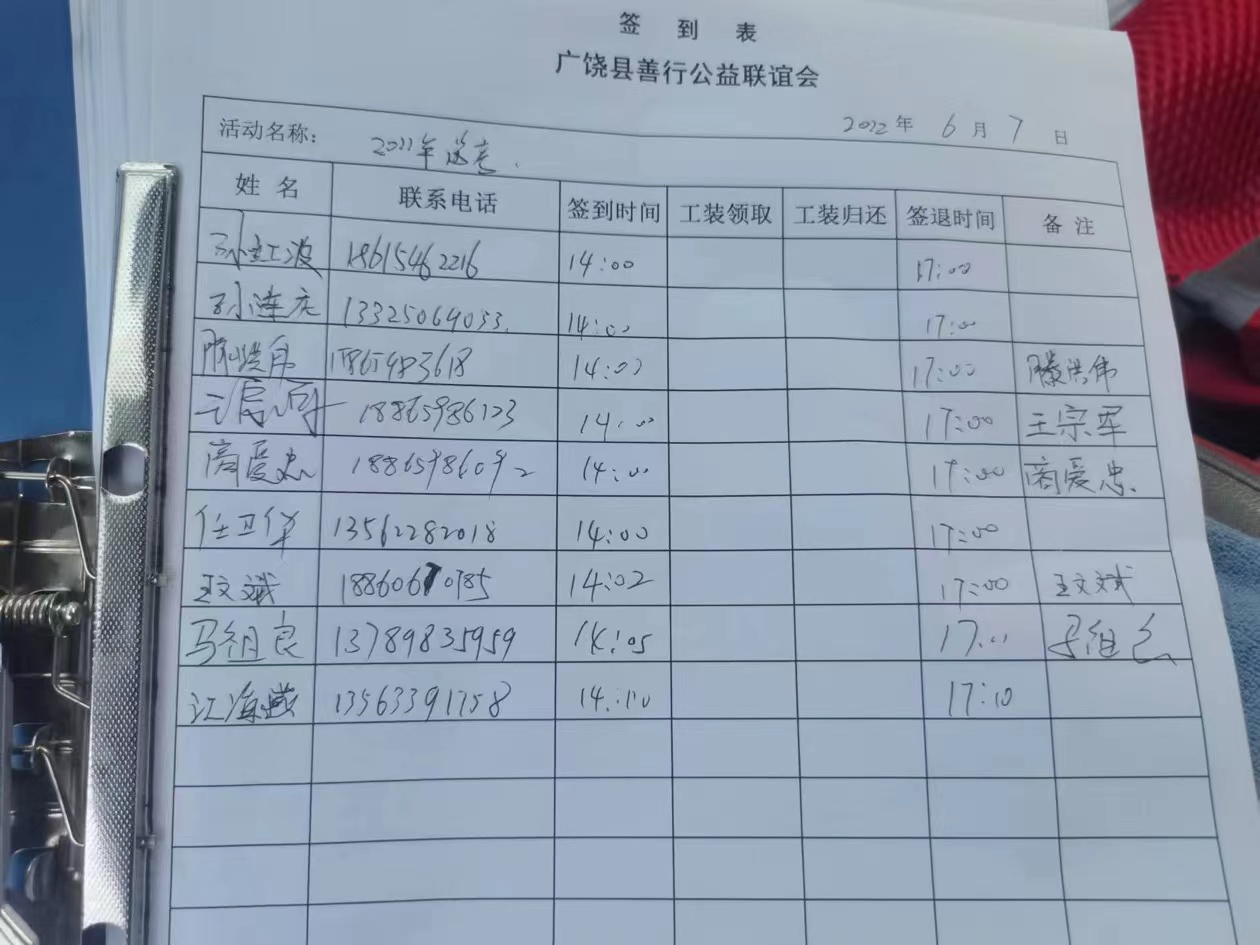 签 到 表
广饶县善行公益联谊会
2022 年 6 月 7 日
活动名称: 2022年送考.
姓 名 联系电话 签到时间 工装领取 工装归还 签退时间 备 注
孙红波 18615462216 14:00 17:00
孙连庆 13325069033. 14:00 17:00
滕洪伟 15865483618 14:00 17:00 滕洪伟
王宗军 18865986123 14:00 17:00 王宗军
商爱忠 18865986092 14:00 17:00 商爱忠.
任卫华 13562282018 14:00 17:00
王文斌 18860670785 14:02 17:00 王文斌
马组良 13789835959 14:05 17:00 马组良
江海燕 13563391758 14:10 17:10